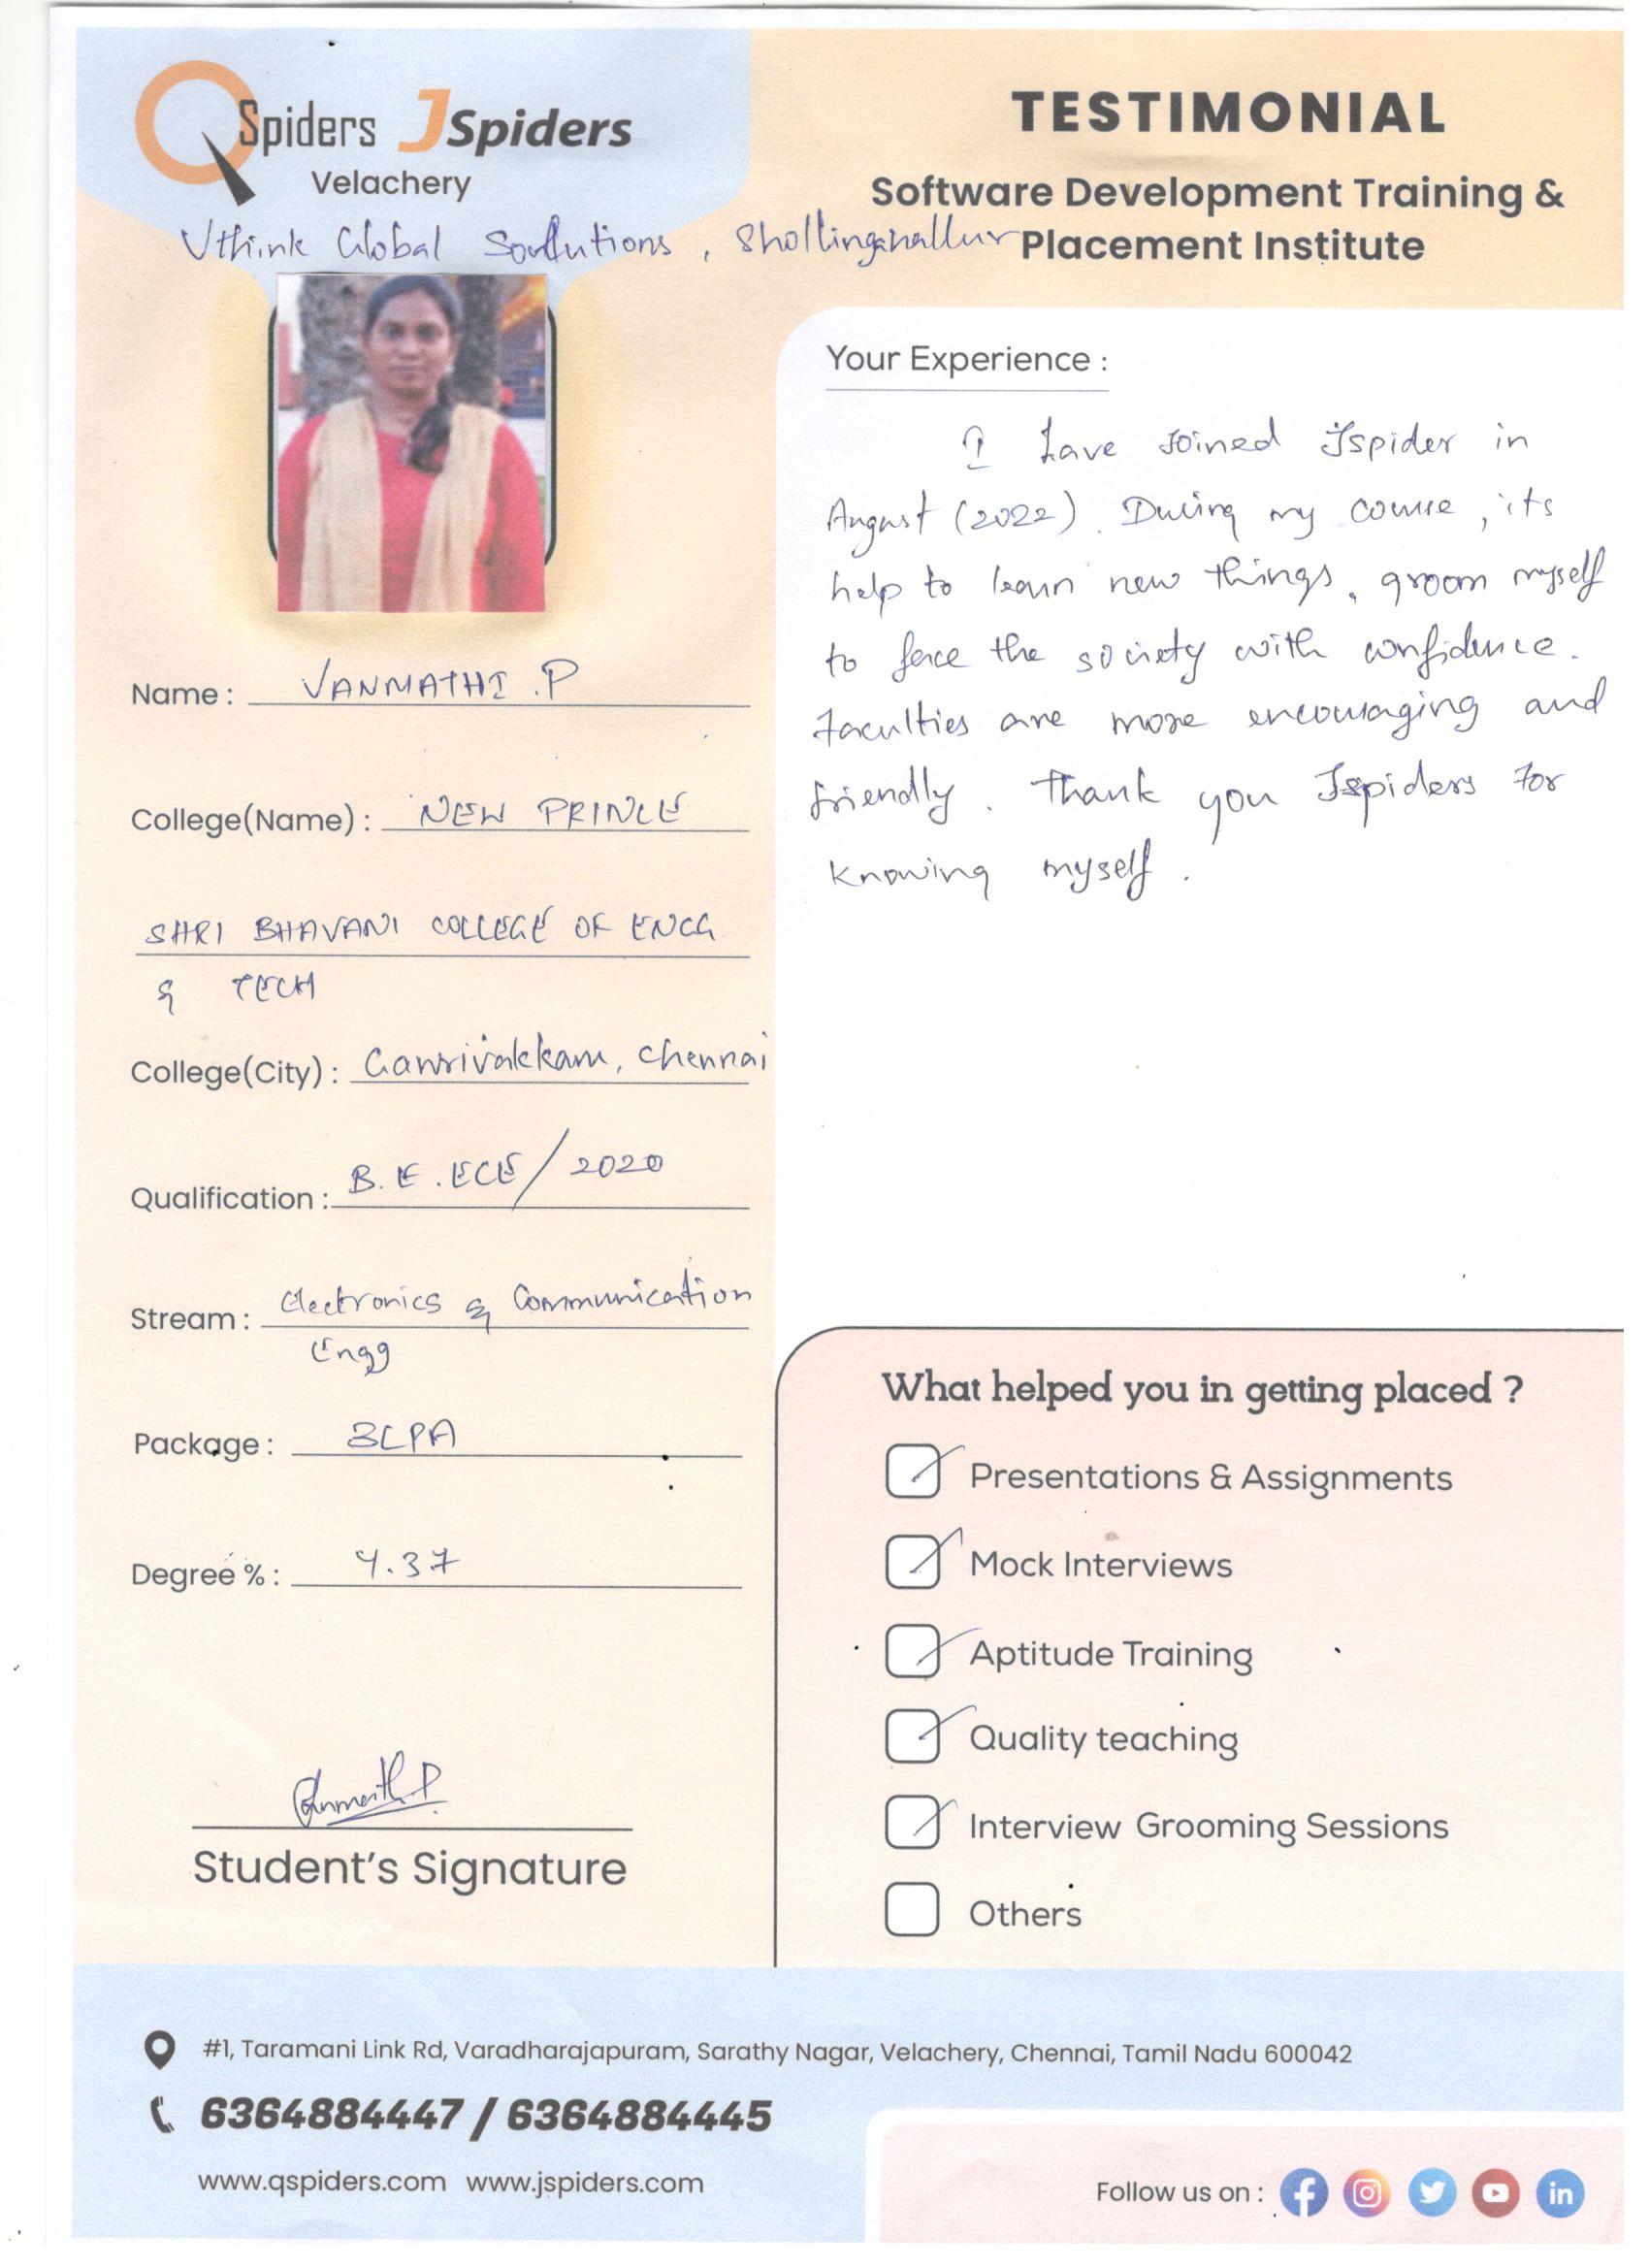 QSpiders JSpiders
Velachery
TESTIMONIAL
Software Development Training &
Placement Institute
Vthink Global Soulutions, Shollinganallur
Your Experience :
I have Joined Jspider in
August (2022). During my course, its
help to learn new things, groom myself
to face the society with confidence.
Faculties are more encouraging and
friendly. Thank you Jspiders for
knowing myself.
Name : VANMATHI .P
College(Name) : NEW PRINCE
SHRI BHAVANI COLLEGE OF ENGG
& TECH
College(City) : Gowrivakkam, Chennai
Qualification : B.E. ECE / 2020
Stream : Electronics & Communication
Engg
Package : 3LPA
Degree % :
Student's Signature
What helped you in getting placed ?
Presentations & Assignments
Mock Interviews
Aptitude Training
Quality teaching
Interview Grooming Sessions
Others
#1, Taramani Link Rd, Varadharajapuram, Sarathy Nagar, Velachery, Chennai, Tamil Nadu 600042
6364884447 / 6364884445
www.qspiders.com www.jspiders.com
Follow us on :